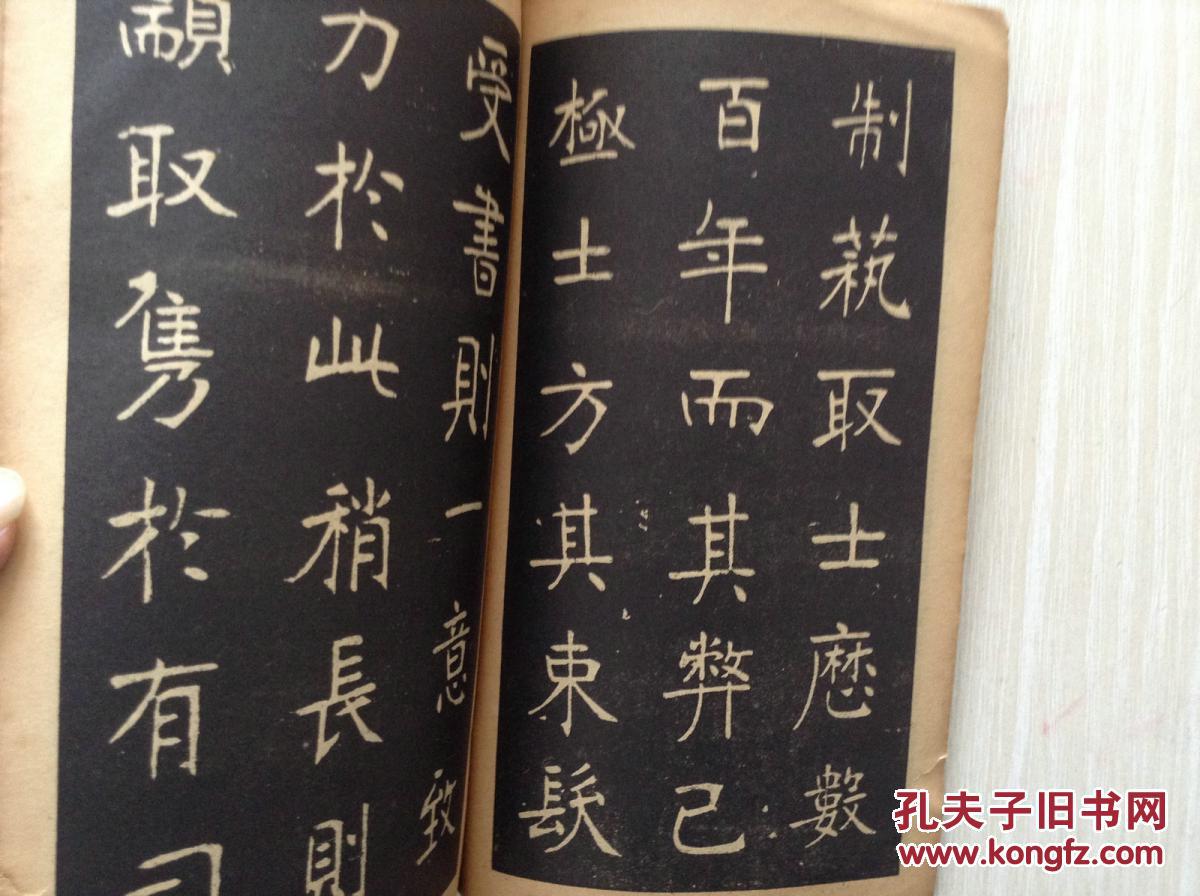 制蓺取士歷數
百年而其弊已
極士方其束髮
受書則一意致
力於此稍長則
顓取雋於有司
孔夫子旧书网
www.kongfz.com